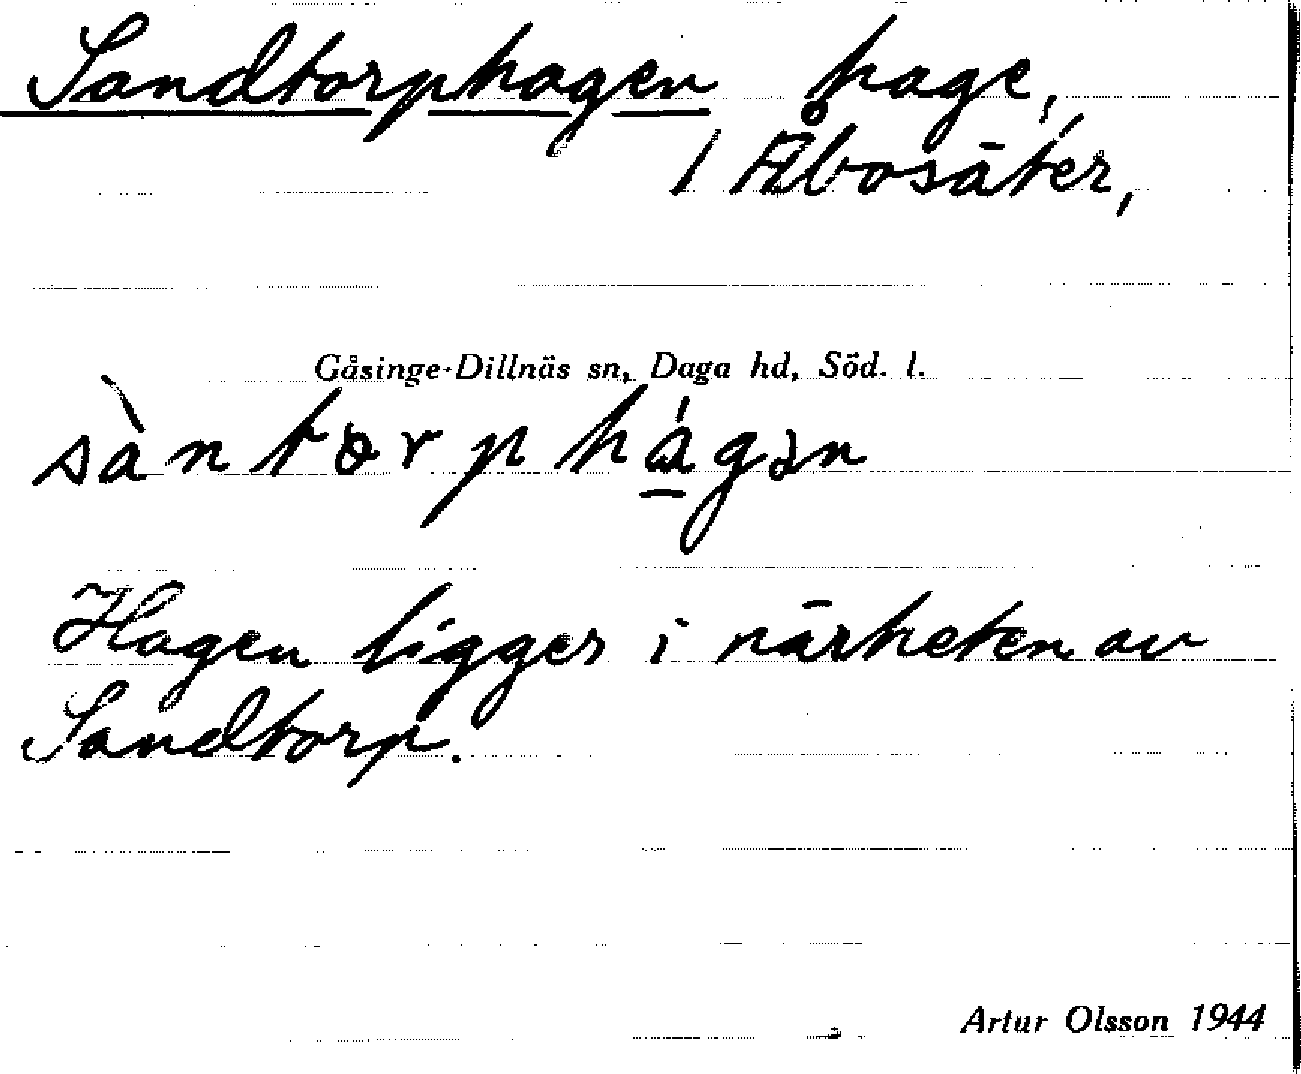 Sandtorphagen hage,
/ Åbosäter,
Gåsinge-Dillnäs sn, Daga hd, Söd. l.
sàntorphágən
Hagen ligger i närheten av
Sandtorp.
Artur Olsson 1944